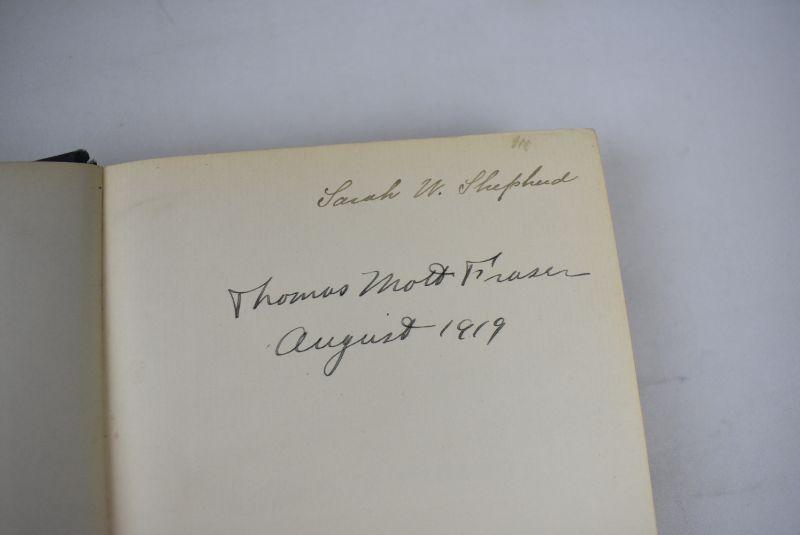 Sarah W. Shepherd
Thomas Mott Fraser
August 1919